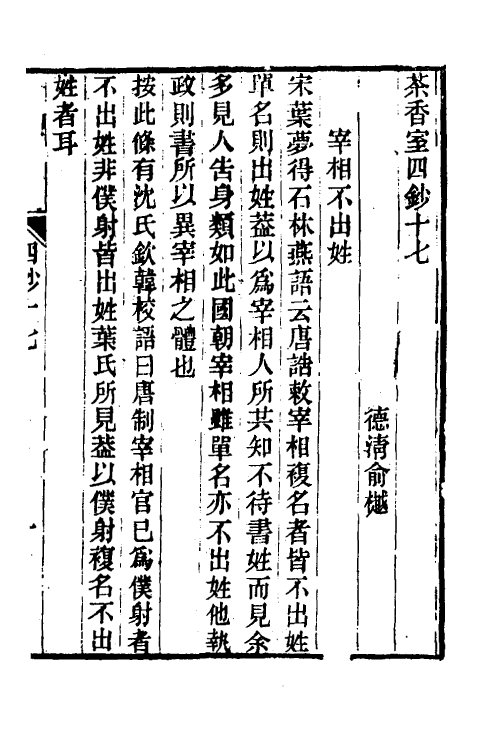 茶香室四鈔十七
德清俞樾
宰相不出姓
宋葉夢得石林燕語云唐誥敕宰相複名者皆不出姓
單名則出姓葢以爲宰相人所共知不待書姓而見余
多見人告身類如此國朝宰相雖單名亦不出姓他執
政則書所以異宰相之體也
按此條有沈氏欽韓校語曰唐制宰相官已爲僕射者
不出姓非僕射皆出姓葉氏所見葢以僕射複名不出
姓者耳
四鈔十七
一